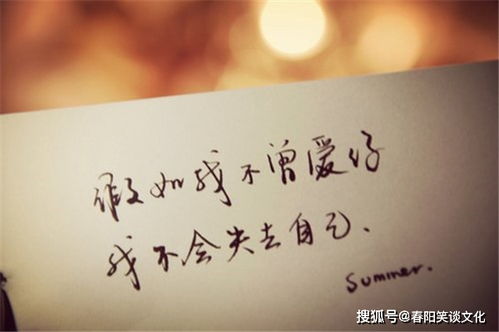 假如我不曾爱你
我不会失去自己、
Summer.
搜狐号@春阳笑谈文化